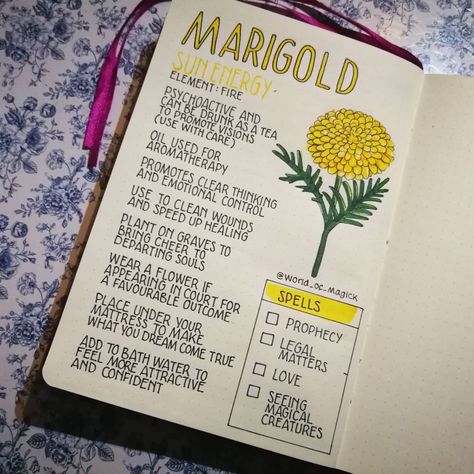 MARIGOLD
SUN ENERGY
ELEMENT: FIRE
PSYCHOACTIVE AND
CAN BE DRUNK AS A TEA
TO PROMOTE VISIONS
(USE WITH CARE)
OIL USED FOR
AROMATHERAPY
PROMOTES CLEAR THINKING
AND EMOTIONAL CONTROL
USE TO CLEAN WOUNDS
AND SPEED UP HEALING
PLANT ON GRAVES TO
BRING CHEER TO
DEPARTING SOULS
WEAR A FLOWER IF
APPEARING IN COURT FOR
A FAVOURABLE OUTCOME
PLACE UNDER YOUR
MATTRESS TO MAKE
WHAT YOU DREAM COME TRUE
ADD TO BATH WATER TO
FEEL MORE ATTRACTIVE
AND CONFIDENT
@WORLD_OF_MAGICK
SPELLS
PROPHECY
LEGAL
MATTERS
LOVE
SEEING
MAGICAL
CREATURES